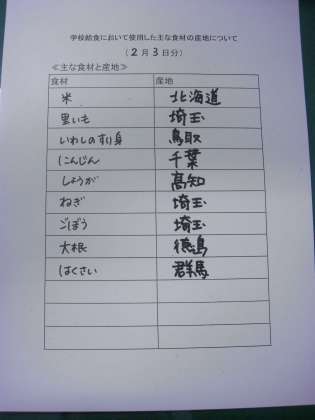 学校給食において使用した主な食材の産地について
(2月3日分)
≪主な食材と産地≫
食材 産地
米 北海道
里いも 埼玉
いわしのすり身 鳥取
にんじん 千葉
しょうが 高知
ねぎ 埼玉
ごぼう 埼玉
大根 徳島
はくさい 群馬